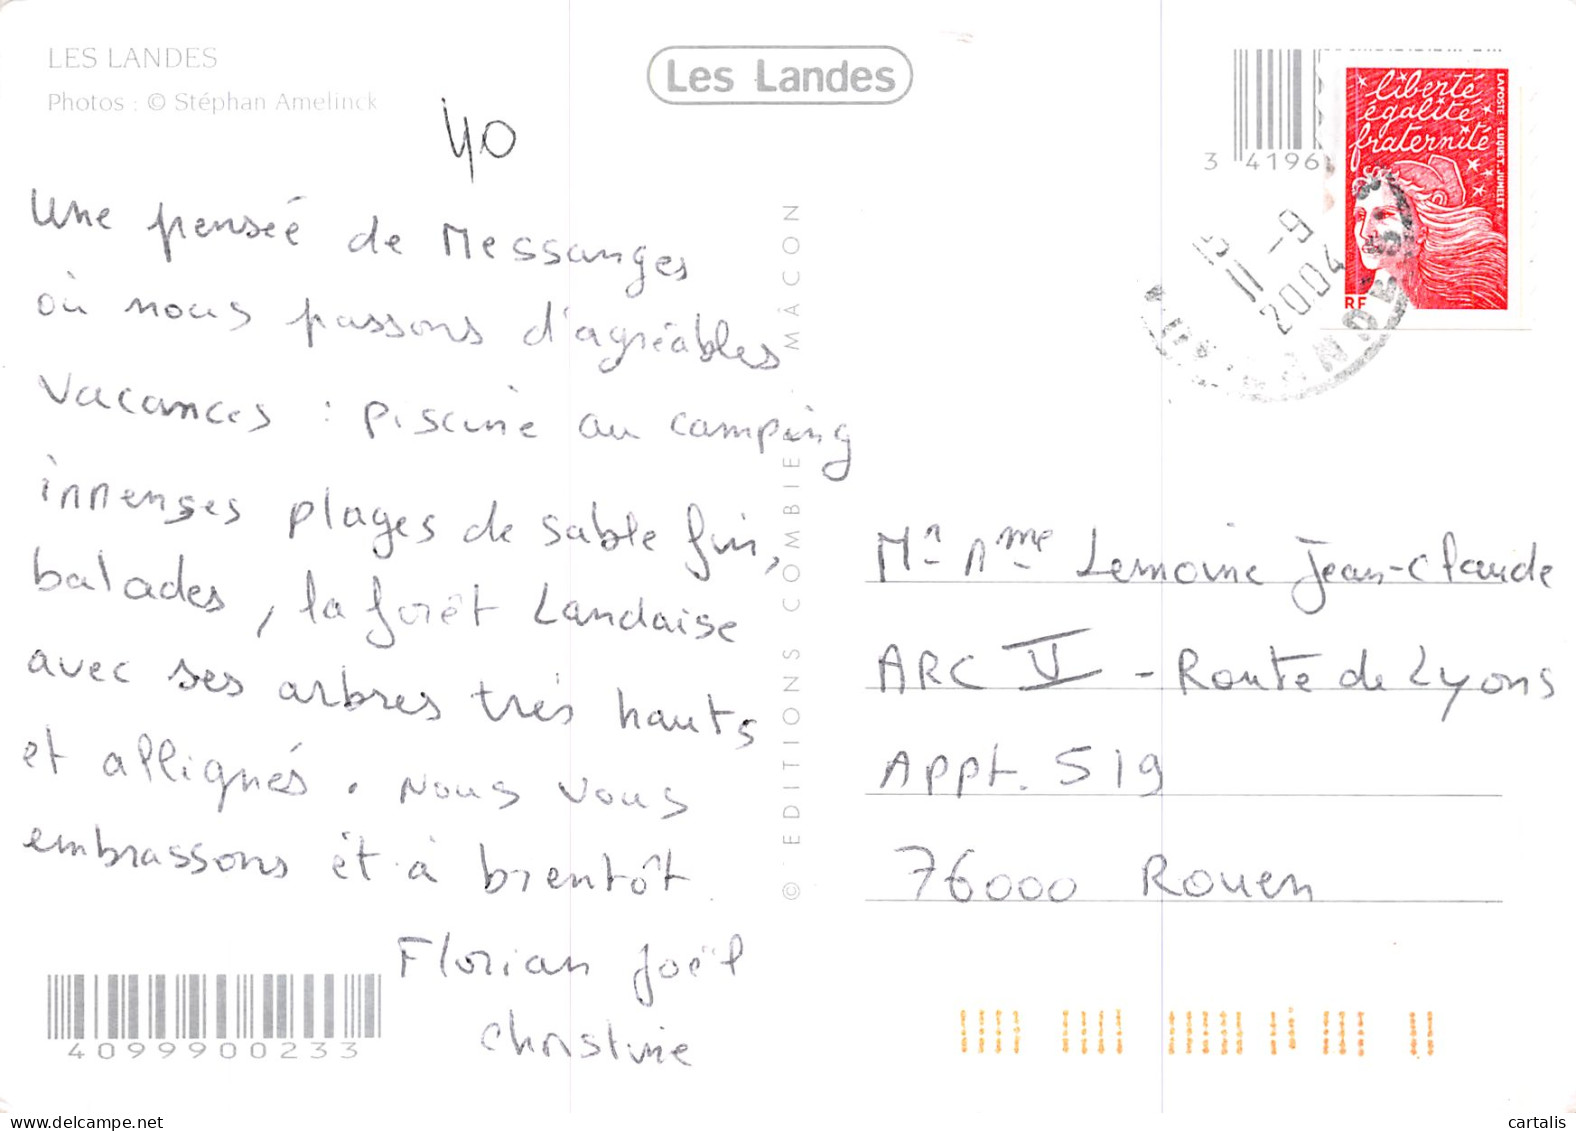 LES LANDES
Photos : © Stéphan Amelinck
Les Landes
40
Une pensée de Messanges
où nous passons d'agréables
vacances : piscine au camping
immenses plages de sable fin,
balades, la forêt Landaise
avec ses arbres très hauts
et allignés. Nous vous
embrassons et à bientôt.
Florian Joël
Christine
4099900233
© EDITIONS COMBIER MÂCON
3 4196
liberté
égalité
fraternité
LA POSTE - LUQUET, JUMELET
RF
11 -9
2004
Mr Mme Lemoine Jean-Claude
ARC V - Route de Lyons
Appt. 519
76000 Rouen
cartalis